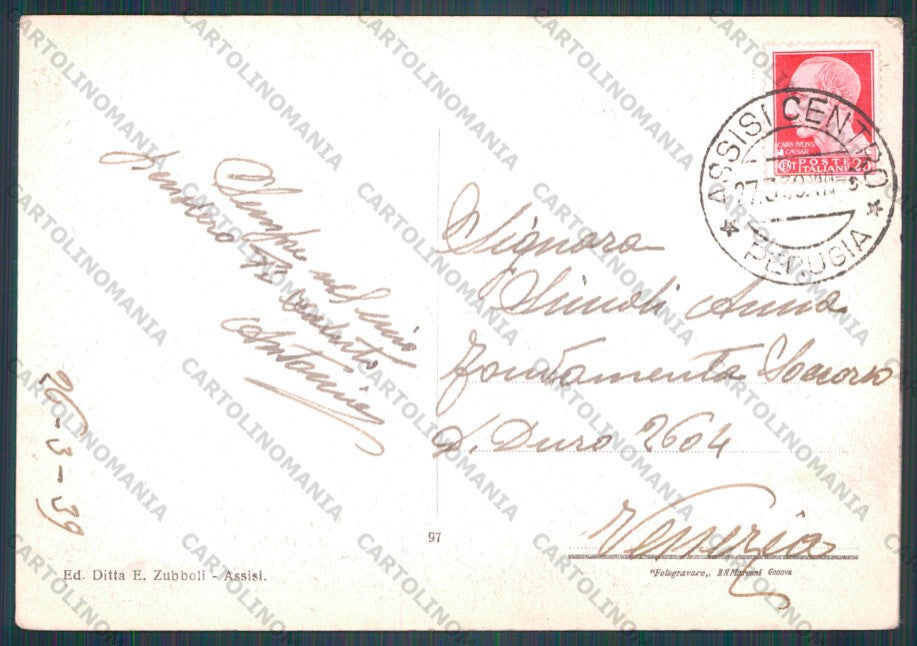 Sempre nel mio
pensiero ti saluto
Antonia
26-3-39
Signora
Anna
Fondamenta Soccorso
D. Duro 2604
Venezia
97
Ed. Ditta E. Zubboli - Assisi.
"Fotogravure„ B.N. Marconi Genova
CAIVS IVLIVS
CAESAR
CENT POSTE 20
ITALIANE
ASSISI CENTRO
27.3.39.XVII
PERUGIA
CARTOLINOMANIA